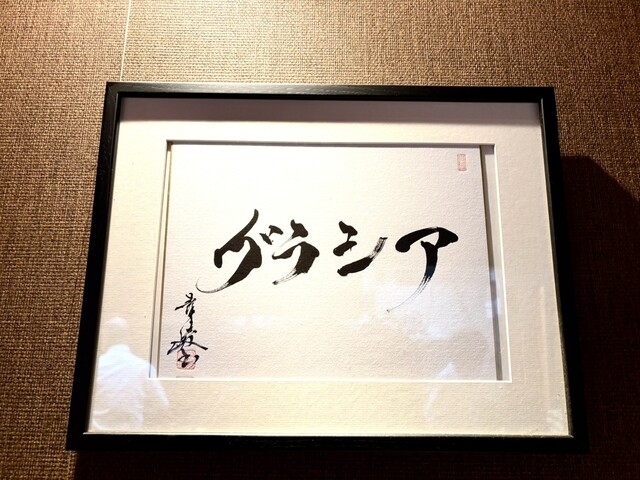 グラシア